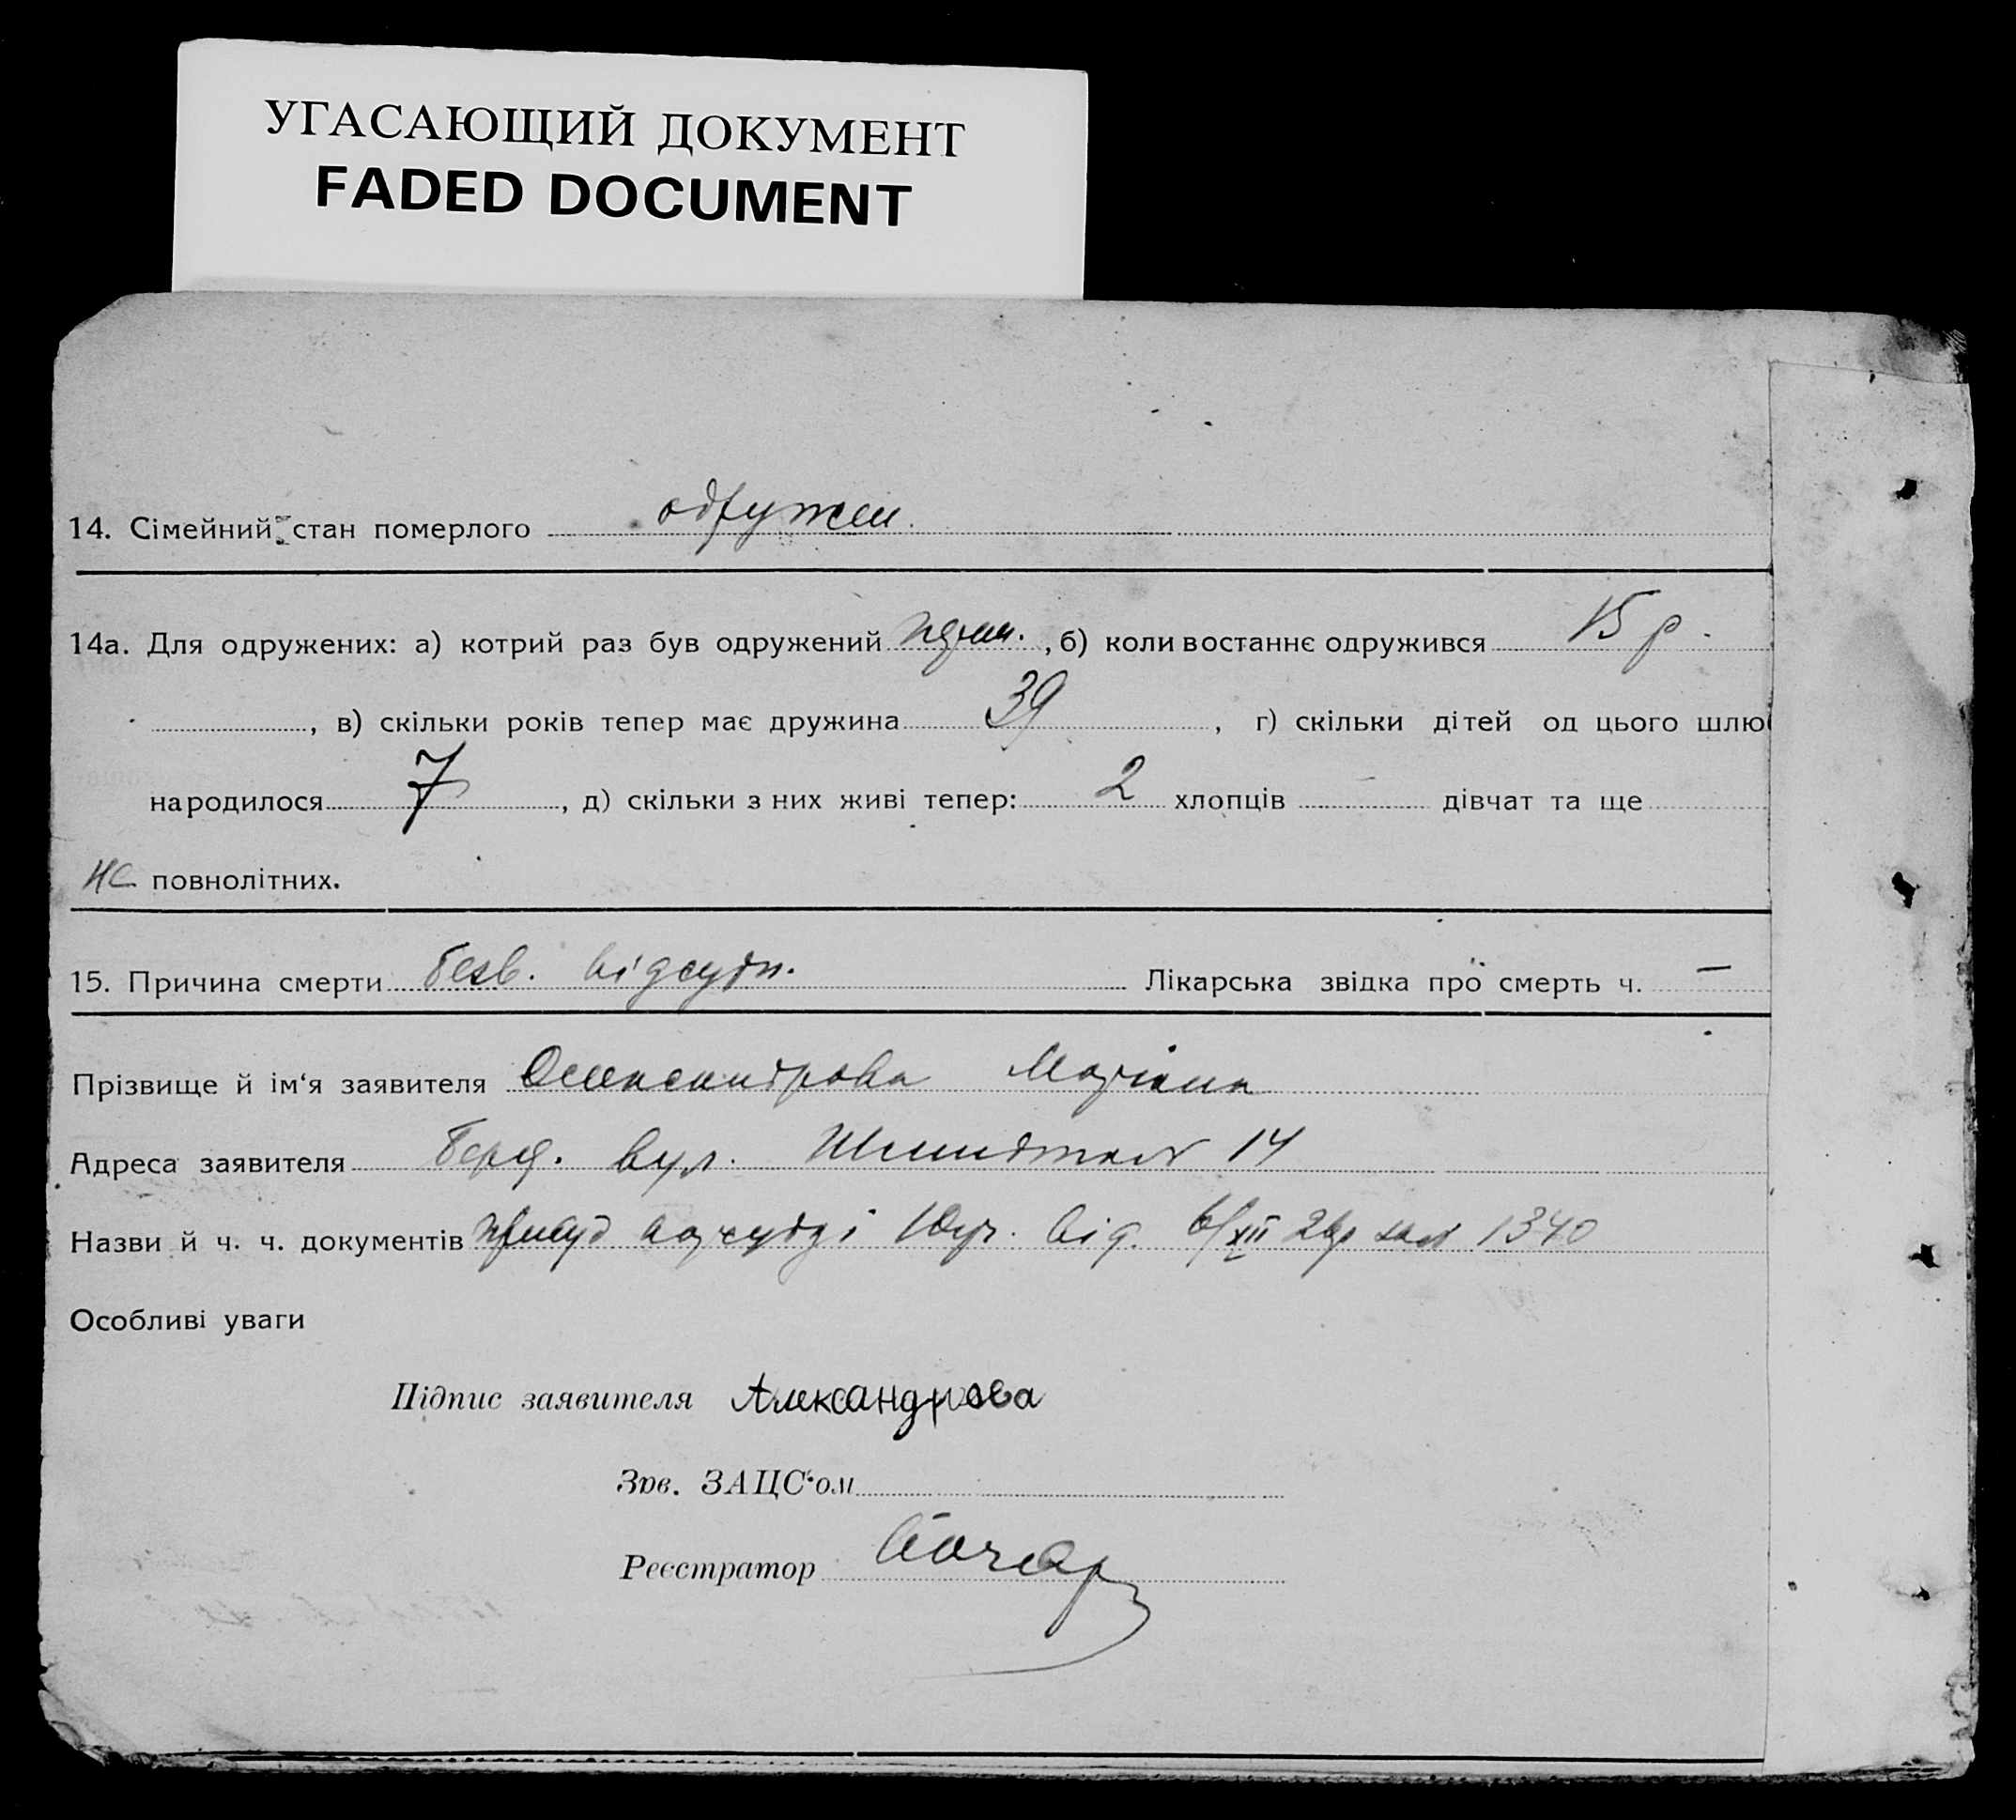 УГАСАЮЩИЙ ДОКУМЕНТ
FADED DOCUMENT
14. Сімейний стан померлого одружен.
14а. Для одружених: а) котрий раз був одружений перш. , б) коли востаннє одружився 15 р.
, в) скільки років тепер має дружина 39 , г) скільки дітей од цього шлю
народилося 7 , д) скільки з них живі тепер: 2 хлопців дівчат та ще
не повнолітних.
15. Причина смерти безв. відсутн. Лікарська звідка про смерть ч. —
Прізвище й ім‘я заявителя Олександрова
Адреса заявителя Берд. вул. 14
Назви й ч. ч. документів від. 6/XII 1340
Особливі уваги
Підпис заявителя Александрова
Зав. ЗАЦС‘ом
Реєстратор